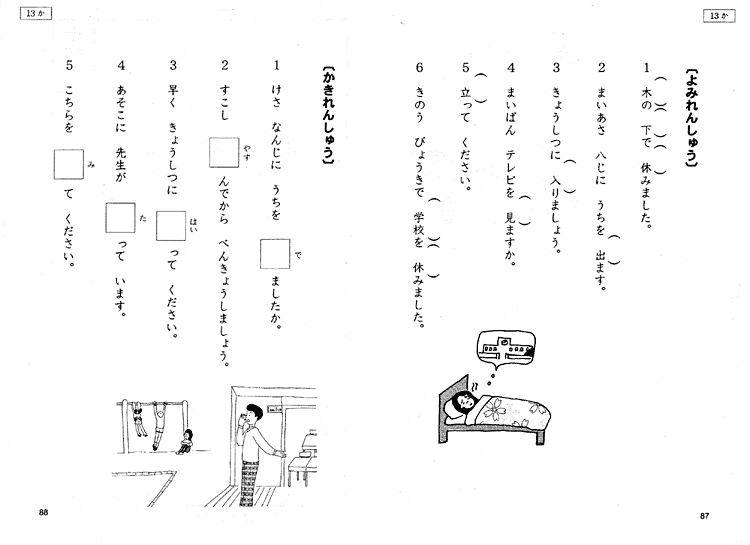 13か
〔よみれんしゅう〕
1 木の 下で 休みました。
2 まいあさ 八じに うちを 出ます。
3 きょうしつに 入りましょう。
4 まいばん テレビを 見ますか。
5 立って ください。
6 きのう びょうきで 学校を 休みました。
87
13か
〔かきれんしゅう〕
1 けさ なんじに うちを □で ましたか。
2 すこし □やす んでから べんきょうしましょう。
3 早く きょうしつに □はい って ください。
4 あそこに 先生が □た って います。
5 こちらを □み て ください。
88